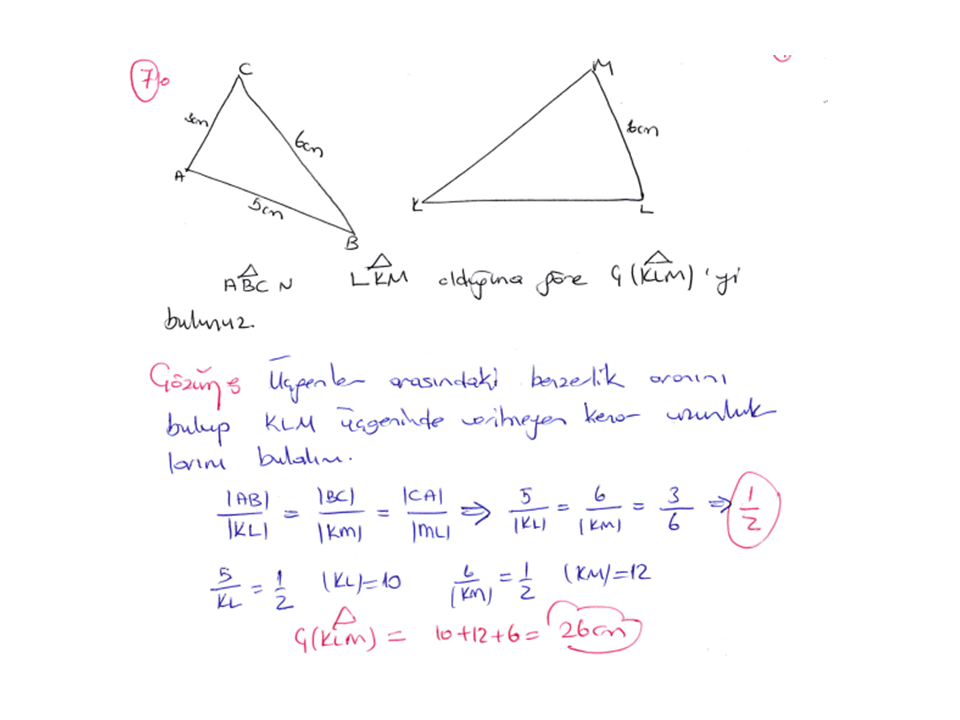 7.
C
M
3cm
6cm
6cm
A
5cm
K
L
B
ABC ~ LKM olduğuna göre Ç(KLM)'yi
bulunuz.
Çözüm: Üçgenler arasındaki benzerlik oranını
bulup KLM üçgeninde verilmeyen kenar uzunluk
larını bulalım.
|AB|/|KL| = |BC|/|KM| = |CA|/|ML| ⇒ 5/|KL| = 6/|KM| = 3/6 ⇒ 1/2
5/KL = 1/2 |KL|=10 6/|KM| = 1/2 |KM|=12
Ç(KLM) = 10+12+6= 26cm